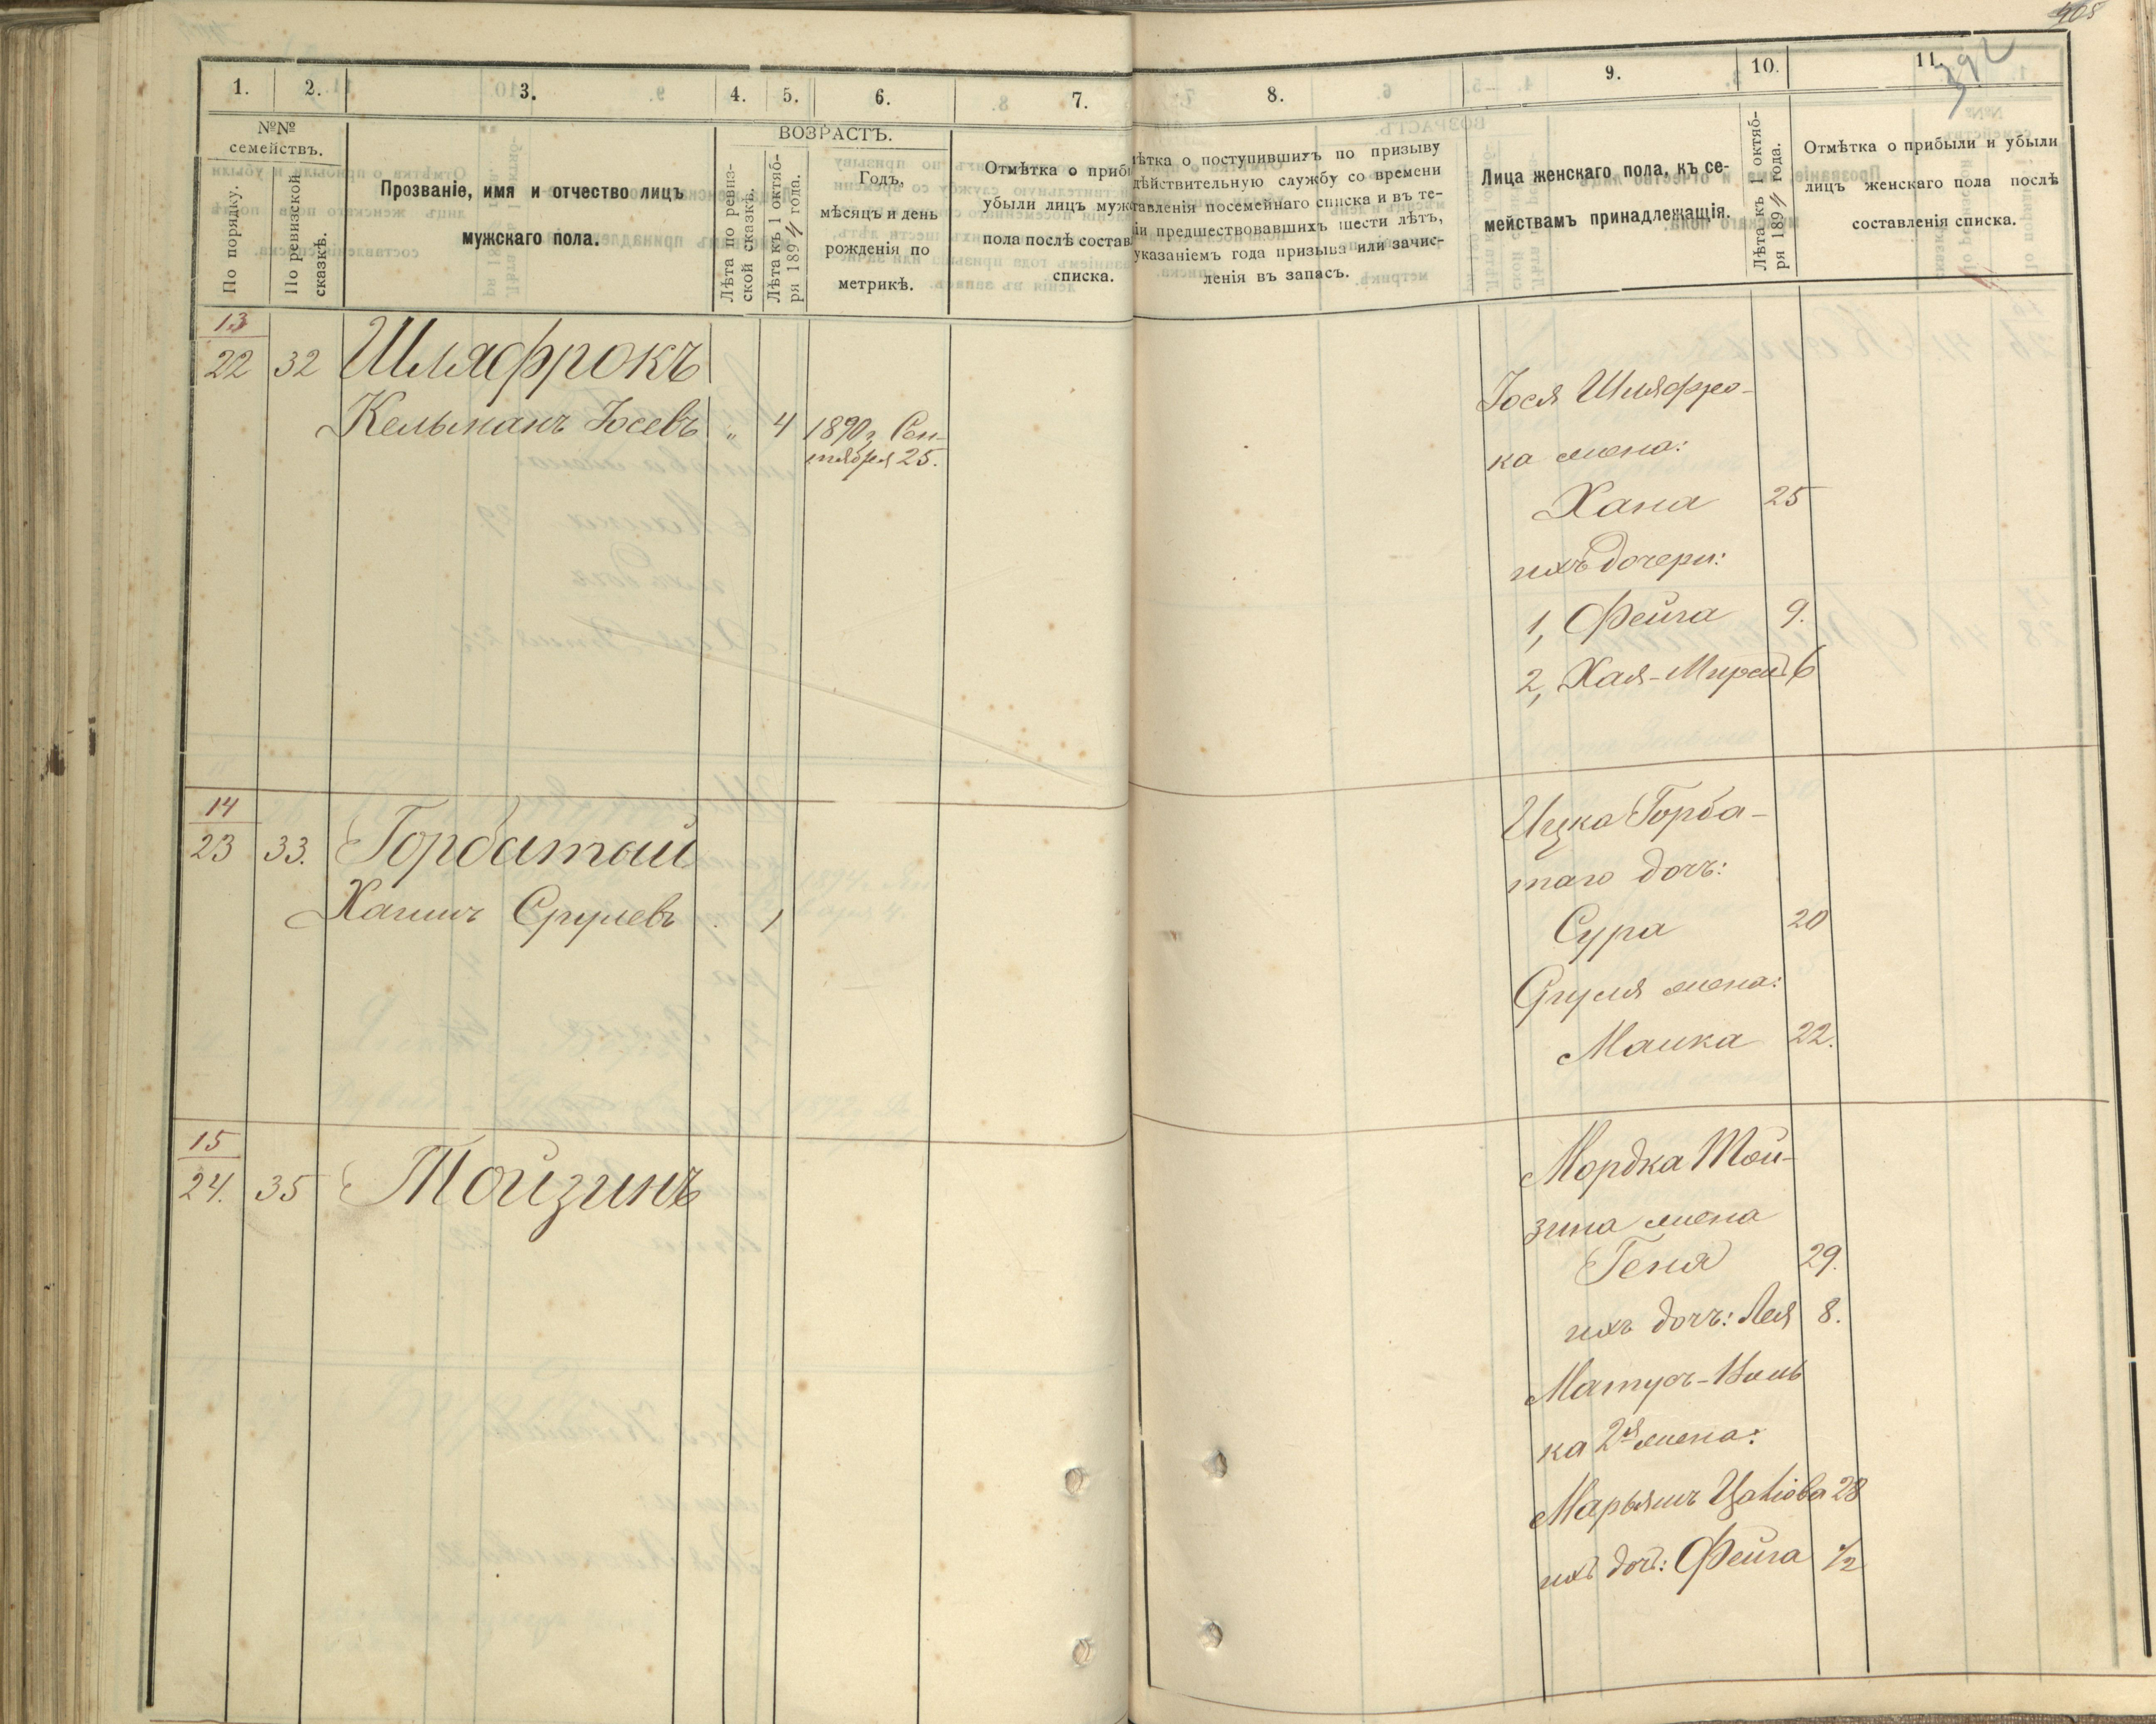 405
392
1. 2. 3. 4. 5. 6. 7. 8. 9. 10. 11.
№№ семействъ.
По порядку.
По ревизской сказкѣ.
Прозваніе, имя и отчество лицъ
мужскаго пола.
ВОЗРАСТЪ.
Лѣта по ревиз-
ской сказкѣ.
Лѣта къ 1 октяб-
ря 1894 года.
Годъ,
мѣсяцъ и день
рожденія по
метрикѣ.
Отмѣтка о приб
убыли лицъ муж
пола послѣ состав
списка.
ѣтка о поступившихъ по призыву
дѣйствительную службу со времени
тавленія посемейнаго списка и въ те-
іи предшествовавшихъ шести лѣтъ,
указаніемъ года призыва или зачис-
ленія въ запасъ.
Лица женскаго пола, къ се-
мействамъ принадлежащія.
Лѣта къ 1 октяб-
ря 1894 года.
Отмѣтка о прибыли и убыли
лицъ женскаго пола послѣ
составленія списка.
13
22 32 Шляфрокъ
Кельманъ Іосевъ „ 4 1890 г. Сен-
тября 25.
Іося Шляфро-
ка жена:
Хана 25
ихъ дочери:
1, Фейга 9.
2, Хая-Мирел 6
14
23 33. Горбатый
Хаимъ Срулевъ 1
Ицка Горба-
таго дочь:
Сура 20
Сруля жена:
Малка 22.
15
24. 35 Тойзинъ
Мордка Той-
зина жена
Геня 29.
ихъ дочь: Лея 8.
Матусъ-
ка 2я жена:
Марьямъ 28
ихъ доч: Фейга ½